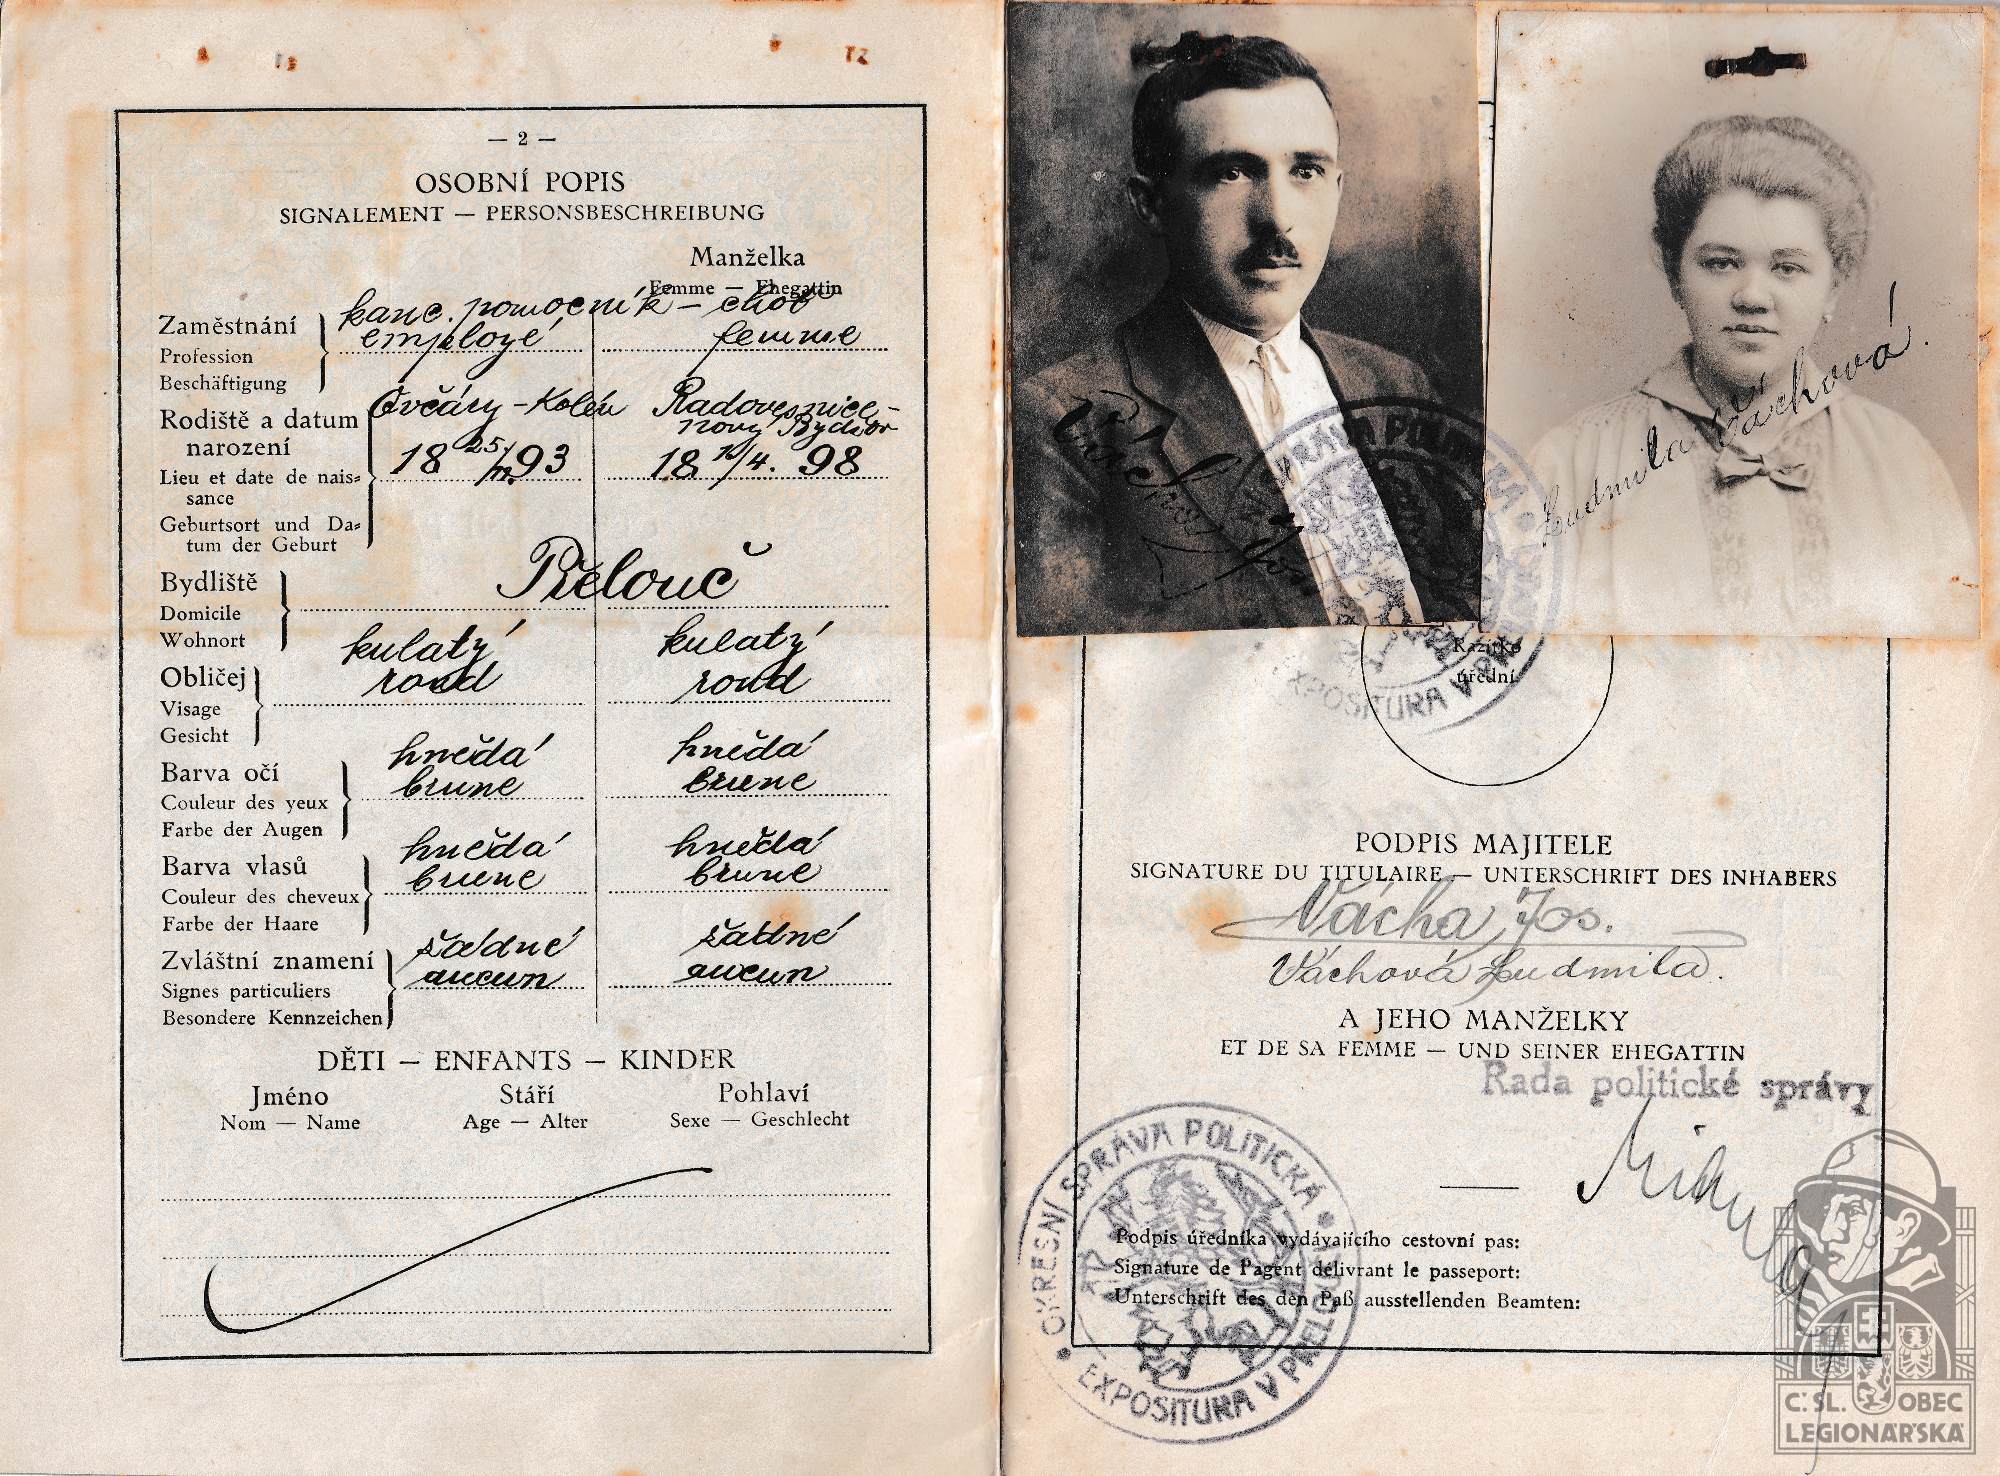 — 2 —
OSOBNÍ POPIS
SIGNALEMENT — PERSONSBESCHREIBUNG
Manželka
Femme — Ehegattin
Zaměstnání
Profession
Beschäftigung
kanc. pomocník – choť
employé femme
Rodiště a datum
narození
Lieu et date de nais=
sance
Geburtsort und Da=
tum der Geburt
Ovčáry – Kolín Radovesnice –
nový Bydžov
18 25/ 93 18 /4. 98
Bydliště
Domicile
Wohnort
Přelouč
Obličej
Visage
Gesicht
kulatý kulatý
rond rond
Barva očí
Couleur des yeux
Farbe der Augen
hnědá hnědá
brune brune
Barva vlasů
Couleur des cheveux
Farbe der Haare
hnědá hnědá
brune brune
Zvláštní znamení
Signes particuliers
Besondere Kennzeichen
žádné žádné
aucun aucun
DĚTI — ENFANTS — KINDER
Jméno Stáří Pohlaví
Nom — Name Age — Alter Sexe — Geschlecht
Vácha Jos
Ludmila Váchová.
SPRÁVA POLITICKÁ
EXPOSITURA V PŘELOUČI
Razítko
úřední
PODPIS MAJITELE
SIGNATURE DU TITULAIRE — UNTERSCHRIFT DES INHABERS
Vácha Jos.
Váchová Ludmila.
A JEHO MANŽELKY
ET DE SA FEMME — UND SEINER EHEGATTIN
Rada politické správy
OKRESNÍ SPRÁVA POLITICKÁ
EXPOSITURA V PŘELOUČI
Podpis úředníka vydávajícího cestovní pas:
Signature de l'agent délivrant le passeport:
Unterschrift des den Paß ausstellenden Beamten:
Č.SL. OBEC
LEGIONÁŘSKÁ